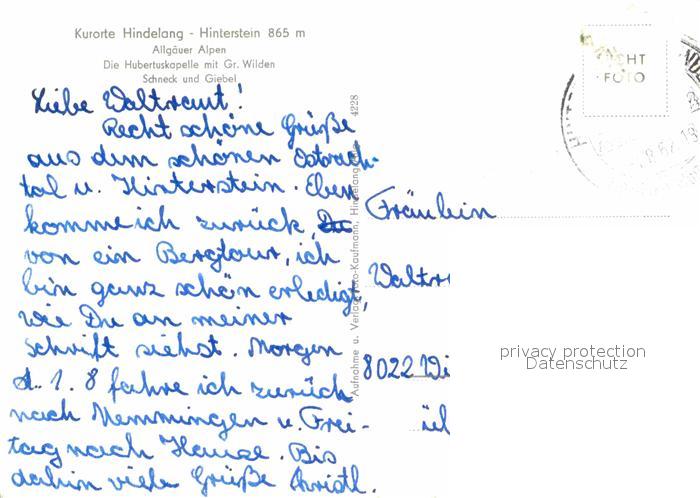 Kurorte Hindelang - Hinterstein 865 m
Allgäuer Alpen
Die Hubertuskapelle mit Gr. Wilden
Schneck und Giebel
Liebe Waltraut!
Recht schöne Grüße
aus dem schönen Ostrach-
tal u. Hinterstein. Eben
komme ich zurück
von ein Bergtour, ich
bin ganz schön erledigt,
wie Du an meiner
Schrift siehst. Morgen
d. 1. 8 fahre ich zurück
nach Memmingen u. Frei-
tag nach Hause. Bis
dahin viele Grüße Christl.
4228
Aufnahme u. Verlag Foto-Kaufmann, Hindelang
FOTO
Fräulein
Waltr
8022
privacy protection
Datenschutz